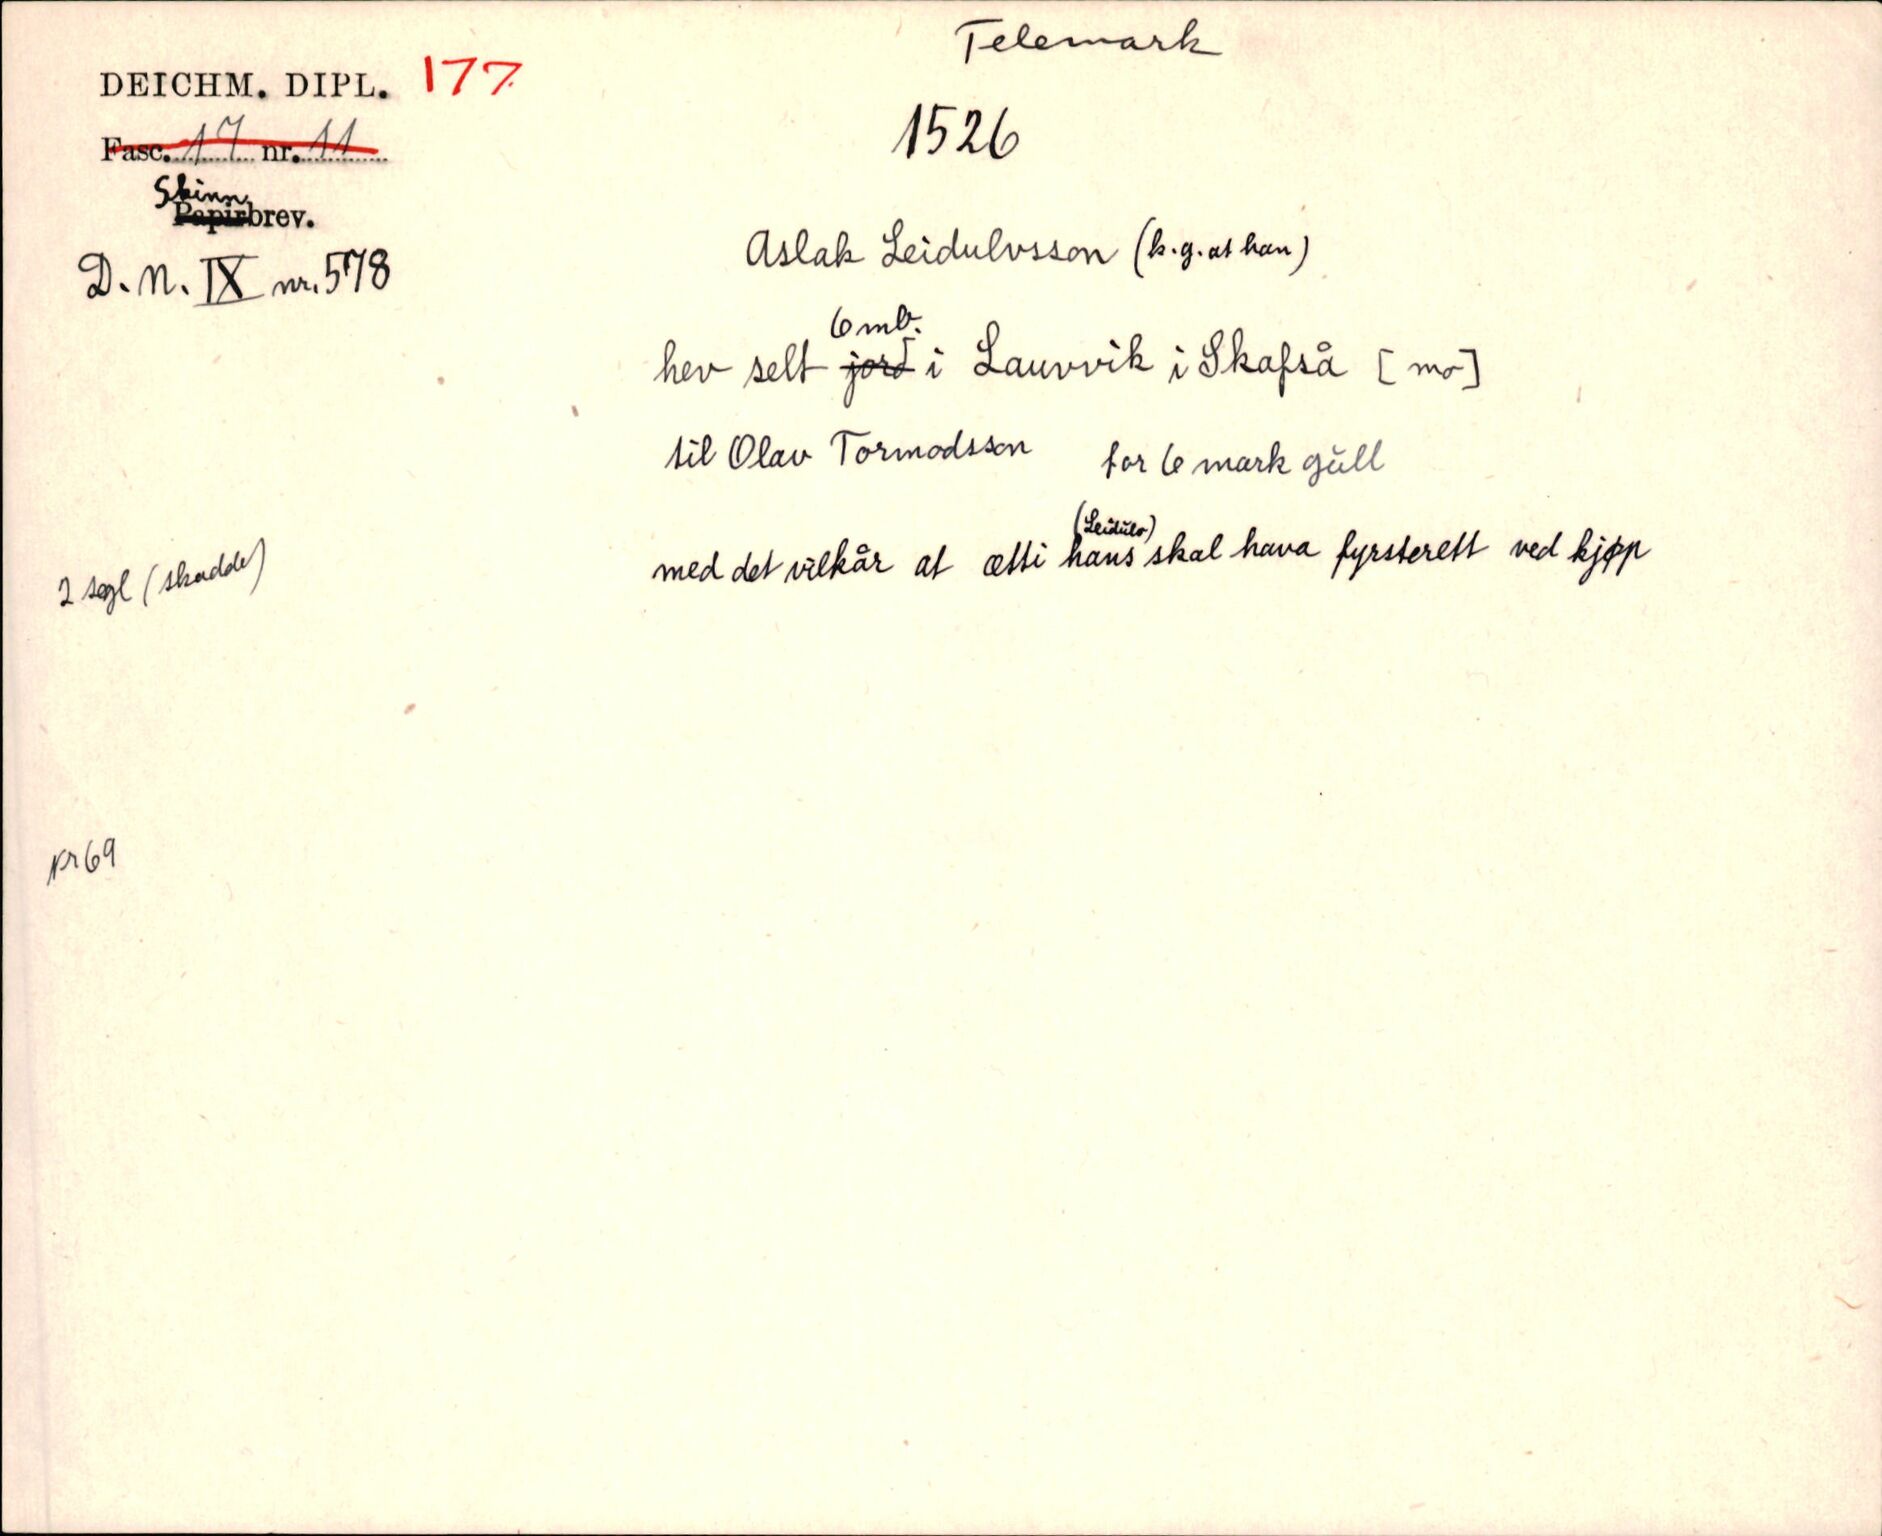 Telemark
DEICHM. DIPL. 177
Fasc. 17 nr. 11
1526
Skinn
Papirbrev.
D.N. IX nr. 578
Aslak Leidulvsson (k.g. at han)
6 mb.
hev selt jord i Lauvvik i Skafså [mo]
til Olav Tormodsson for 6 mark gull
(Leidulv)
med det vilkår at ætti hans skal hava fyrsterett ved kjøp
2 segl (skadde)
Nr 69